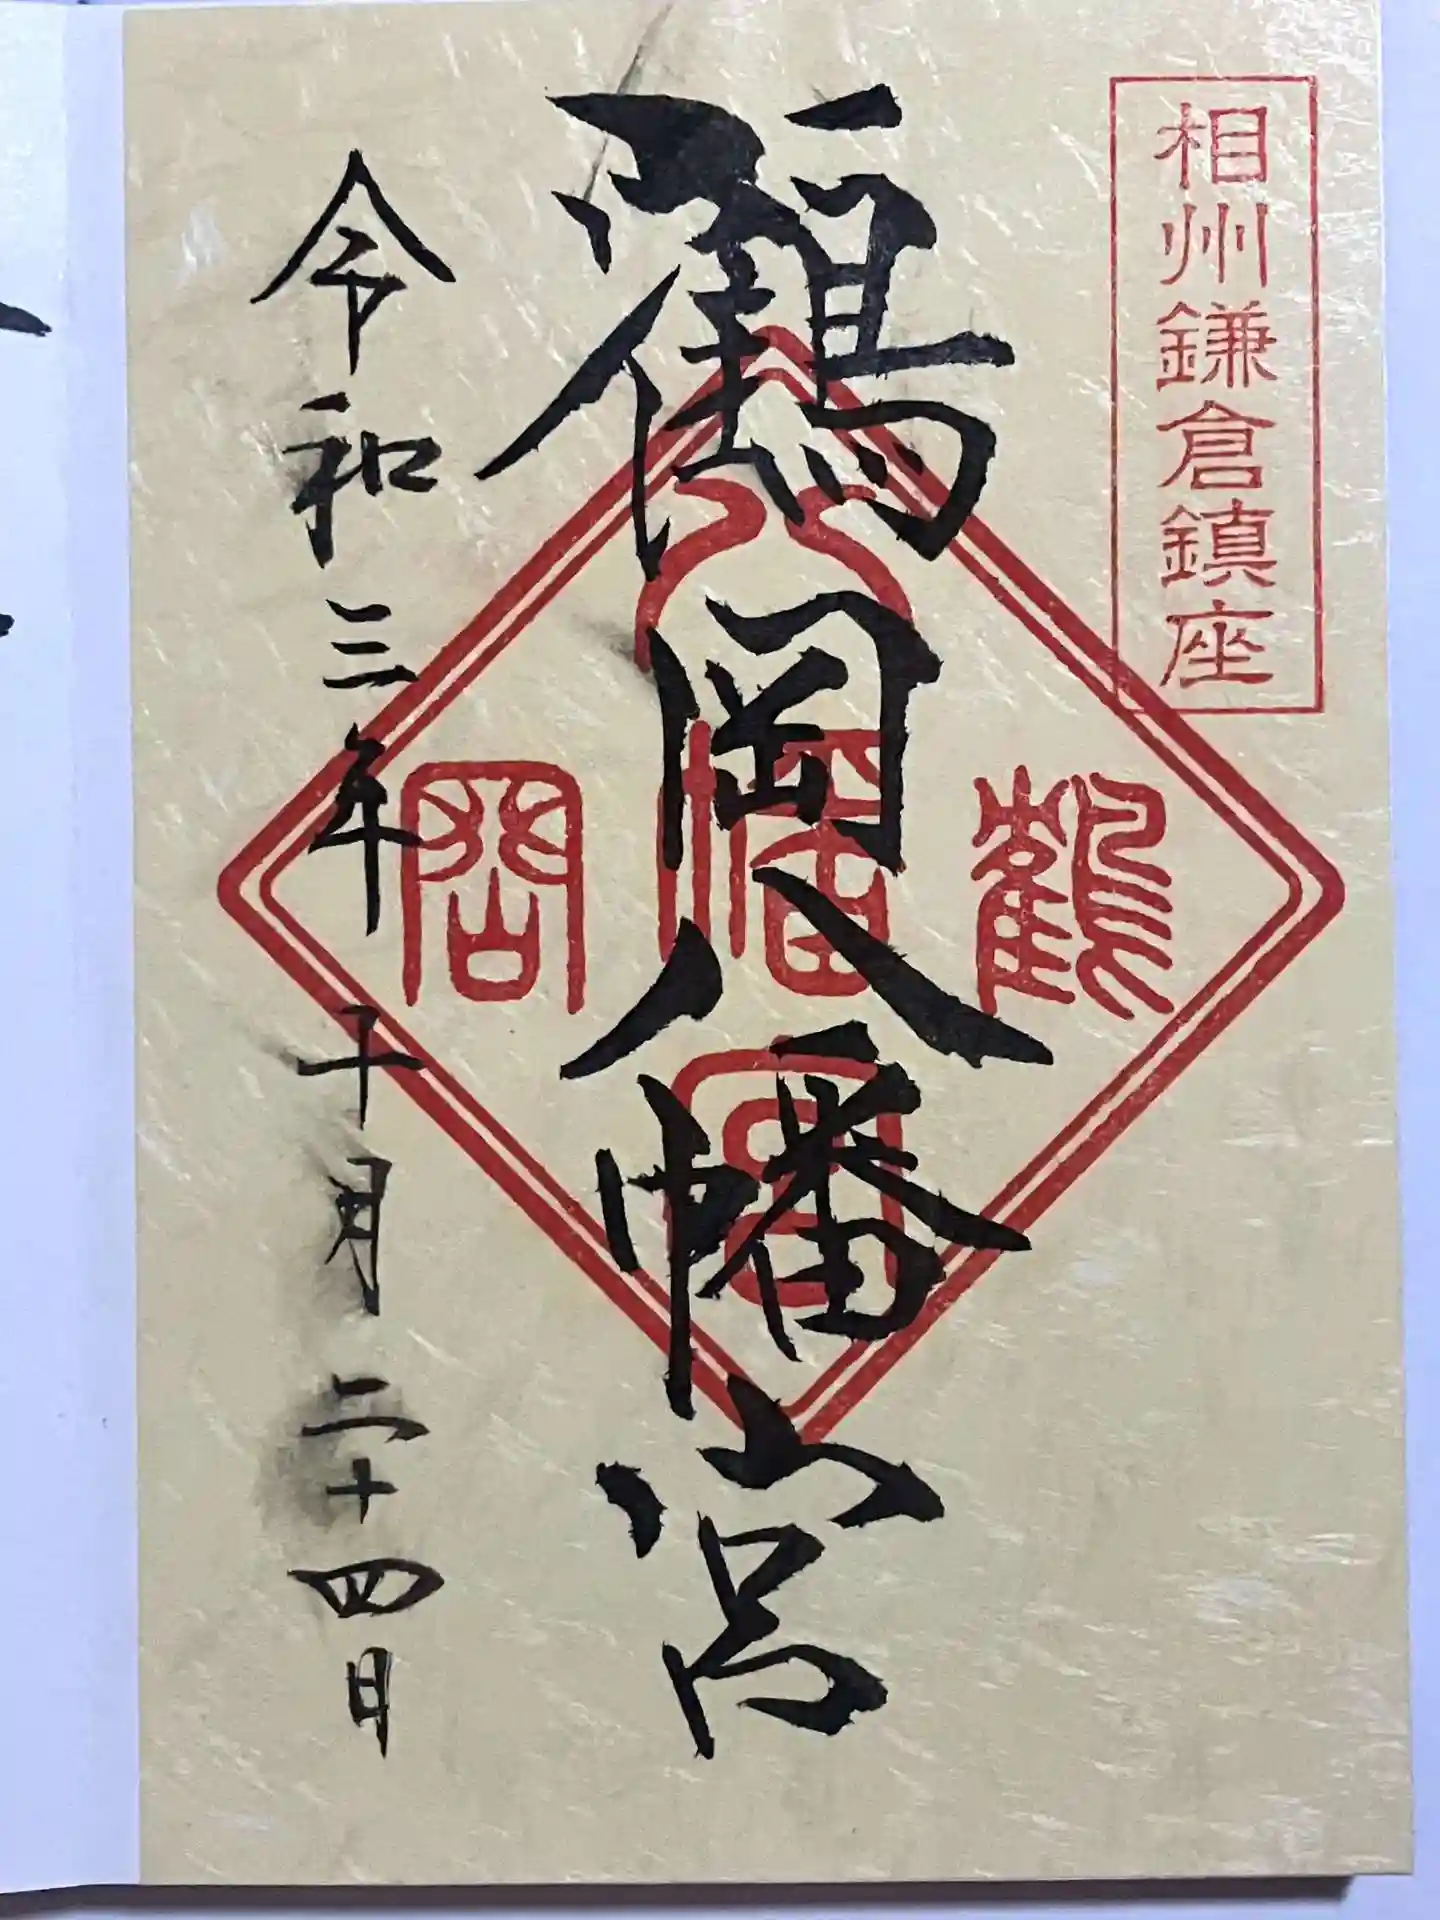 相州鎌倉鎮座
鶴岡八幡宮
鶴
八
幡
宮
岡
令和三年十月二十四日